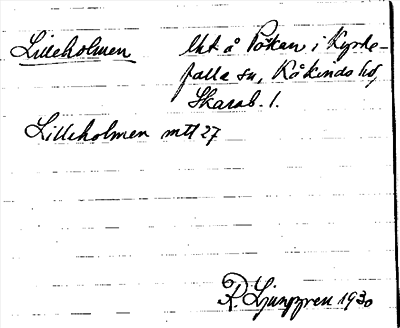 Lilleholmen Utt å Pökan i Kyrke-
falla sn, Kåkinds hd,
Skarab. l.
Lilleholmen mtl 27
R. Ljunggren 1930